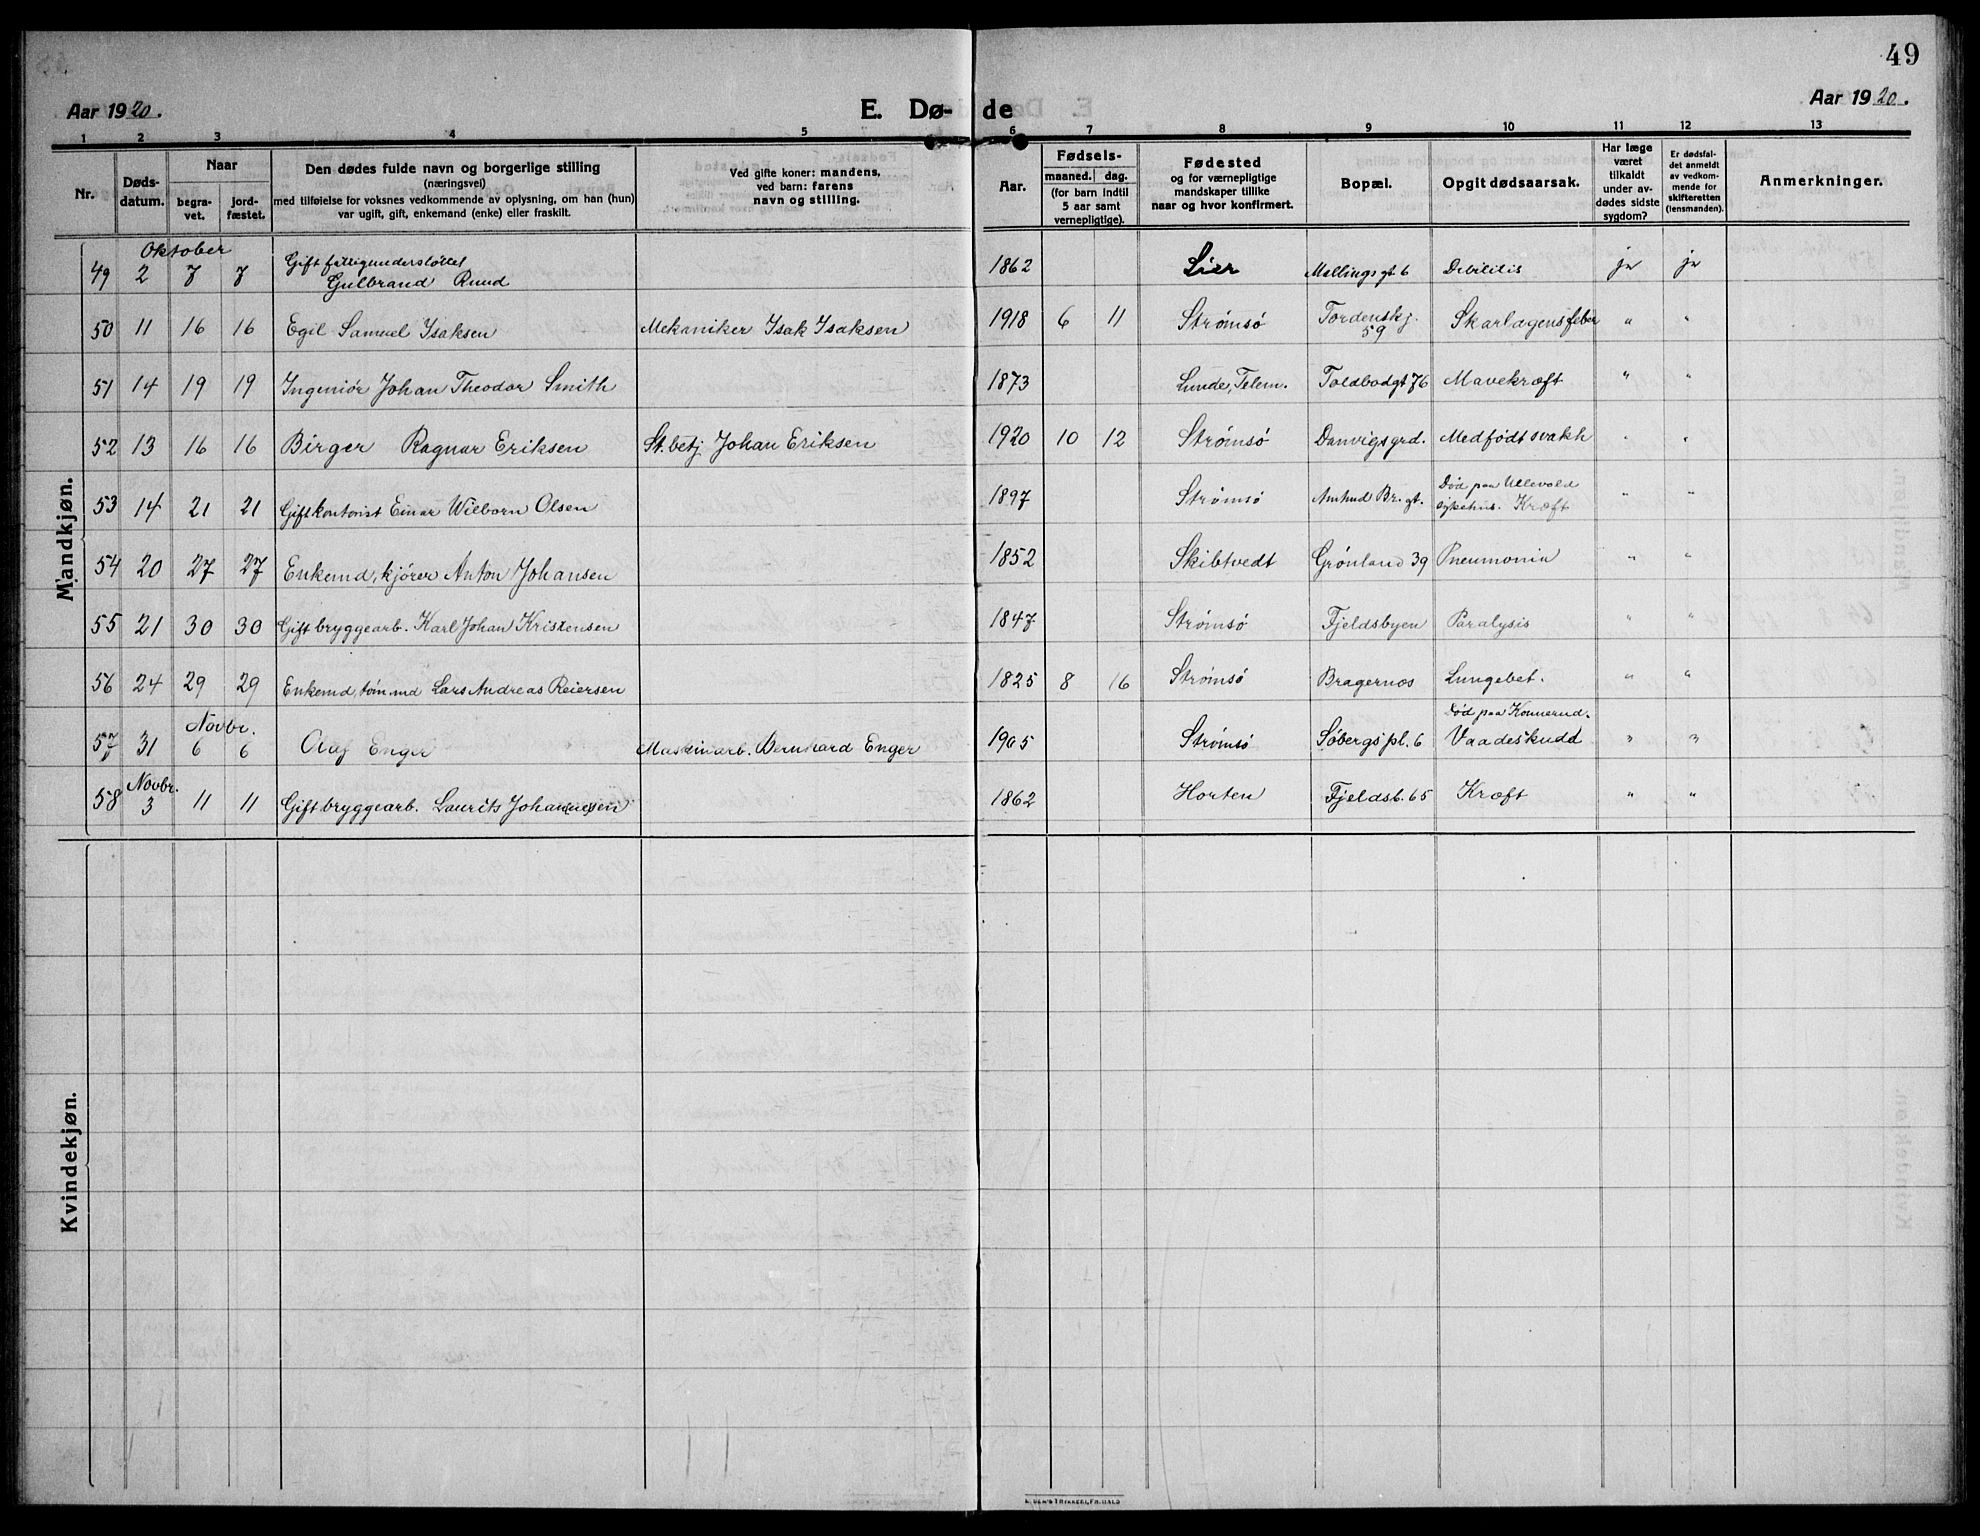 49
Aar 1920. E. Dø- de Aar 1920.
1 2 3 4 5 6 7 8 9 10 11 12 13
Nr.
Døds-
datum.
Naar
begra-
vet.
jord-
fæstet.
Den dødes fulde navn og borgerlige stilling
(næringsvei)
med tilføielse for voksnes vedkommende av oplysning, om han (hun)
var ugift, gift, enkemand (enke) eller fraskilt.
Ved gifte koner: mandens,
ved barn: farens
navn og stilling.
Aar.
Fødsels-
maaned. dag.
(for barn indtil
5 aar samt
vernepligtige).
Fødested
og for værnepligtige
mandskaper tillike
naar og hvor konfirmert.
Bopæl.
Opgit dødsaarsak.
Har læge
været
tilkaldt
under av-
dødes sidste
sygdom?
Er dødsfal-
det anmeldt
av vedkom-
mende for
skifteretten
(lensmanden).
Anmerkninger.
Mandkjøn.
Oktober
Gift fattigunderstøttet
49 2 7 7 Gulbrand Ruud 1862 Lier Mallings gt 6 Debilitis ja ja
50 11 16 16 Egil Samuel Isaksen Mekaniker Isak Isaksen 1918 6 11 Strømsø Tordenskj. 59 Skarlagensfeber " "
51 14 19 19 Ingeniør Johan Theodor Smith 1873 Lunde, Telem. Toldbodgt 76 Mavekræft " "
52 13 16 16 Birger Ragnar Eriksen St. betj Johan Eriksen 1920 10 12 Strømsø Danvigsgrd. Medfødt svakh " "
53 14 21 21 Gift kontorist Einar Wilborn Olsen 1897 Strømsø Br. gt. Død paa Ullevold sykehus. Kræft " "
54 20 27 27 Enkemd, kjører Anton Johansen 1852 Skibtvedt Grønland 39 Pneumonia " "
55 21 30 30 Gift bryggearb. Karl Johan Kristensen 1847 Strømsø Fjeldsbyen Paralysis " "
56 24 29 29 Enkemd, tømmd Lars Andreas Reiersen 1825 8 16 Strømsø Bragernæs Lungebet. " "
Novbr.
57 31 6 6 Olaf Enger Maskinarb. Bernhard Enger 1905 Strømsø Søbergs pl. 6 Død paa Konnerud. Vaadeskudd " "
Novbr.
58 3 11 11 Gift bryggearb. Laurits Johannesen 1862 Horten Fjeldsb. 65 Kræft " "
Kvindekjøn.